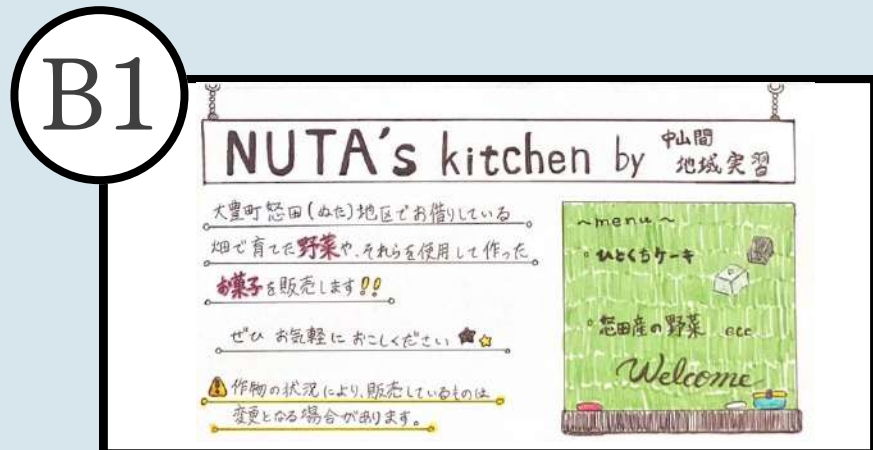 B1
NUTA's kitchen by 中山間
地域実習
大豊町怒田(ぬた)地区でお借りしている
畑で育てた野菜や、それらを使用して作った
お菓子を販売します!!
ぜひ お気軽に おこしください
作物の状況により、販売しているものは
変更となる場合があります。
~menu~
・ひとくちケーキ
・怒田産の野菜 etc
Welcome